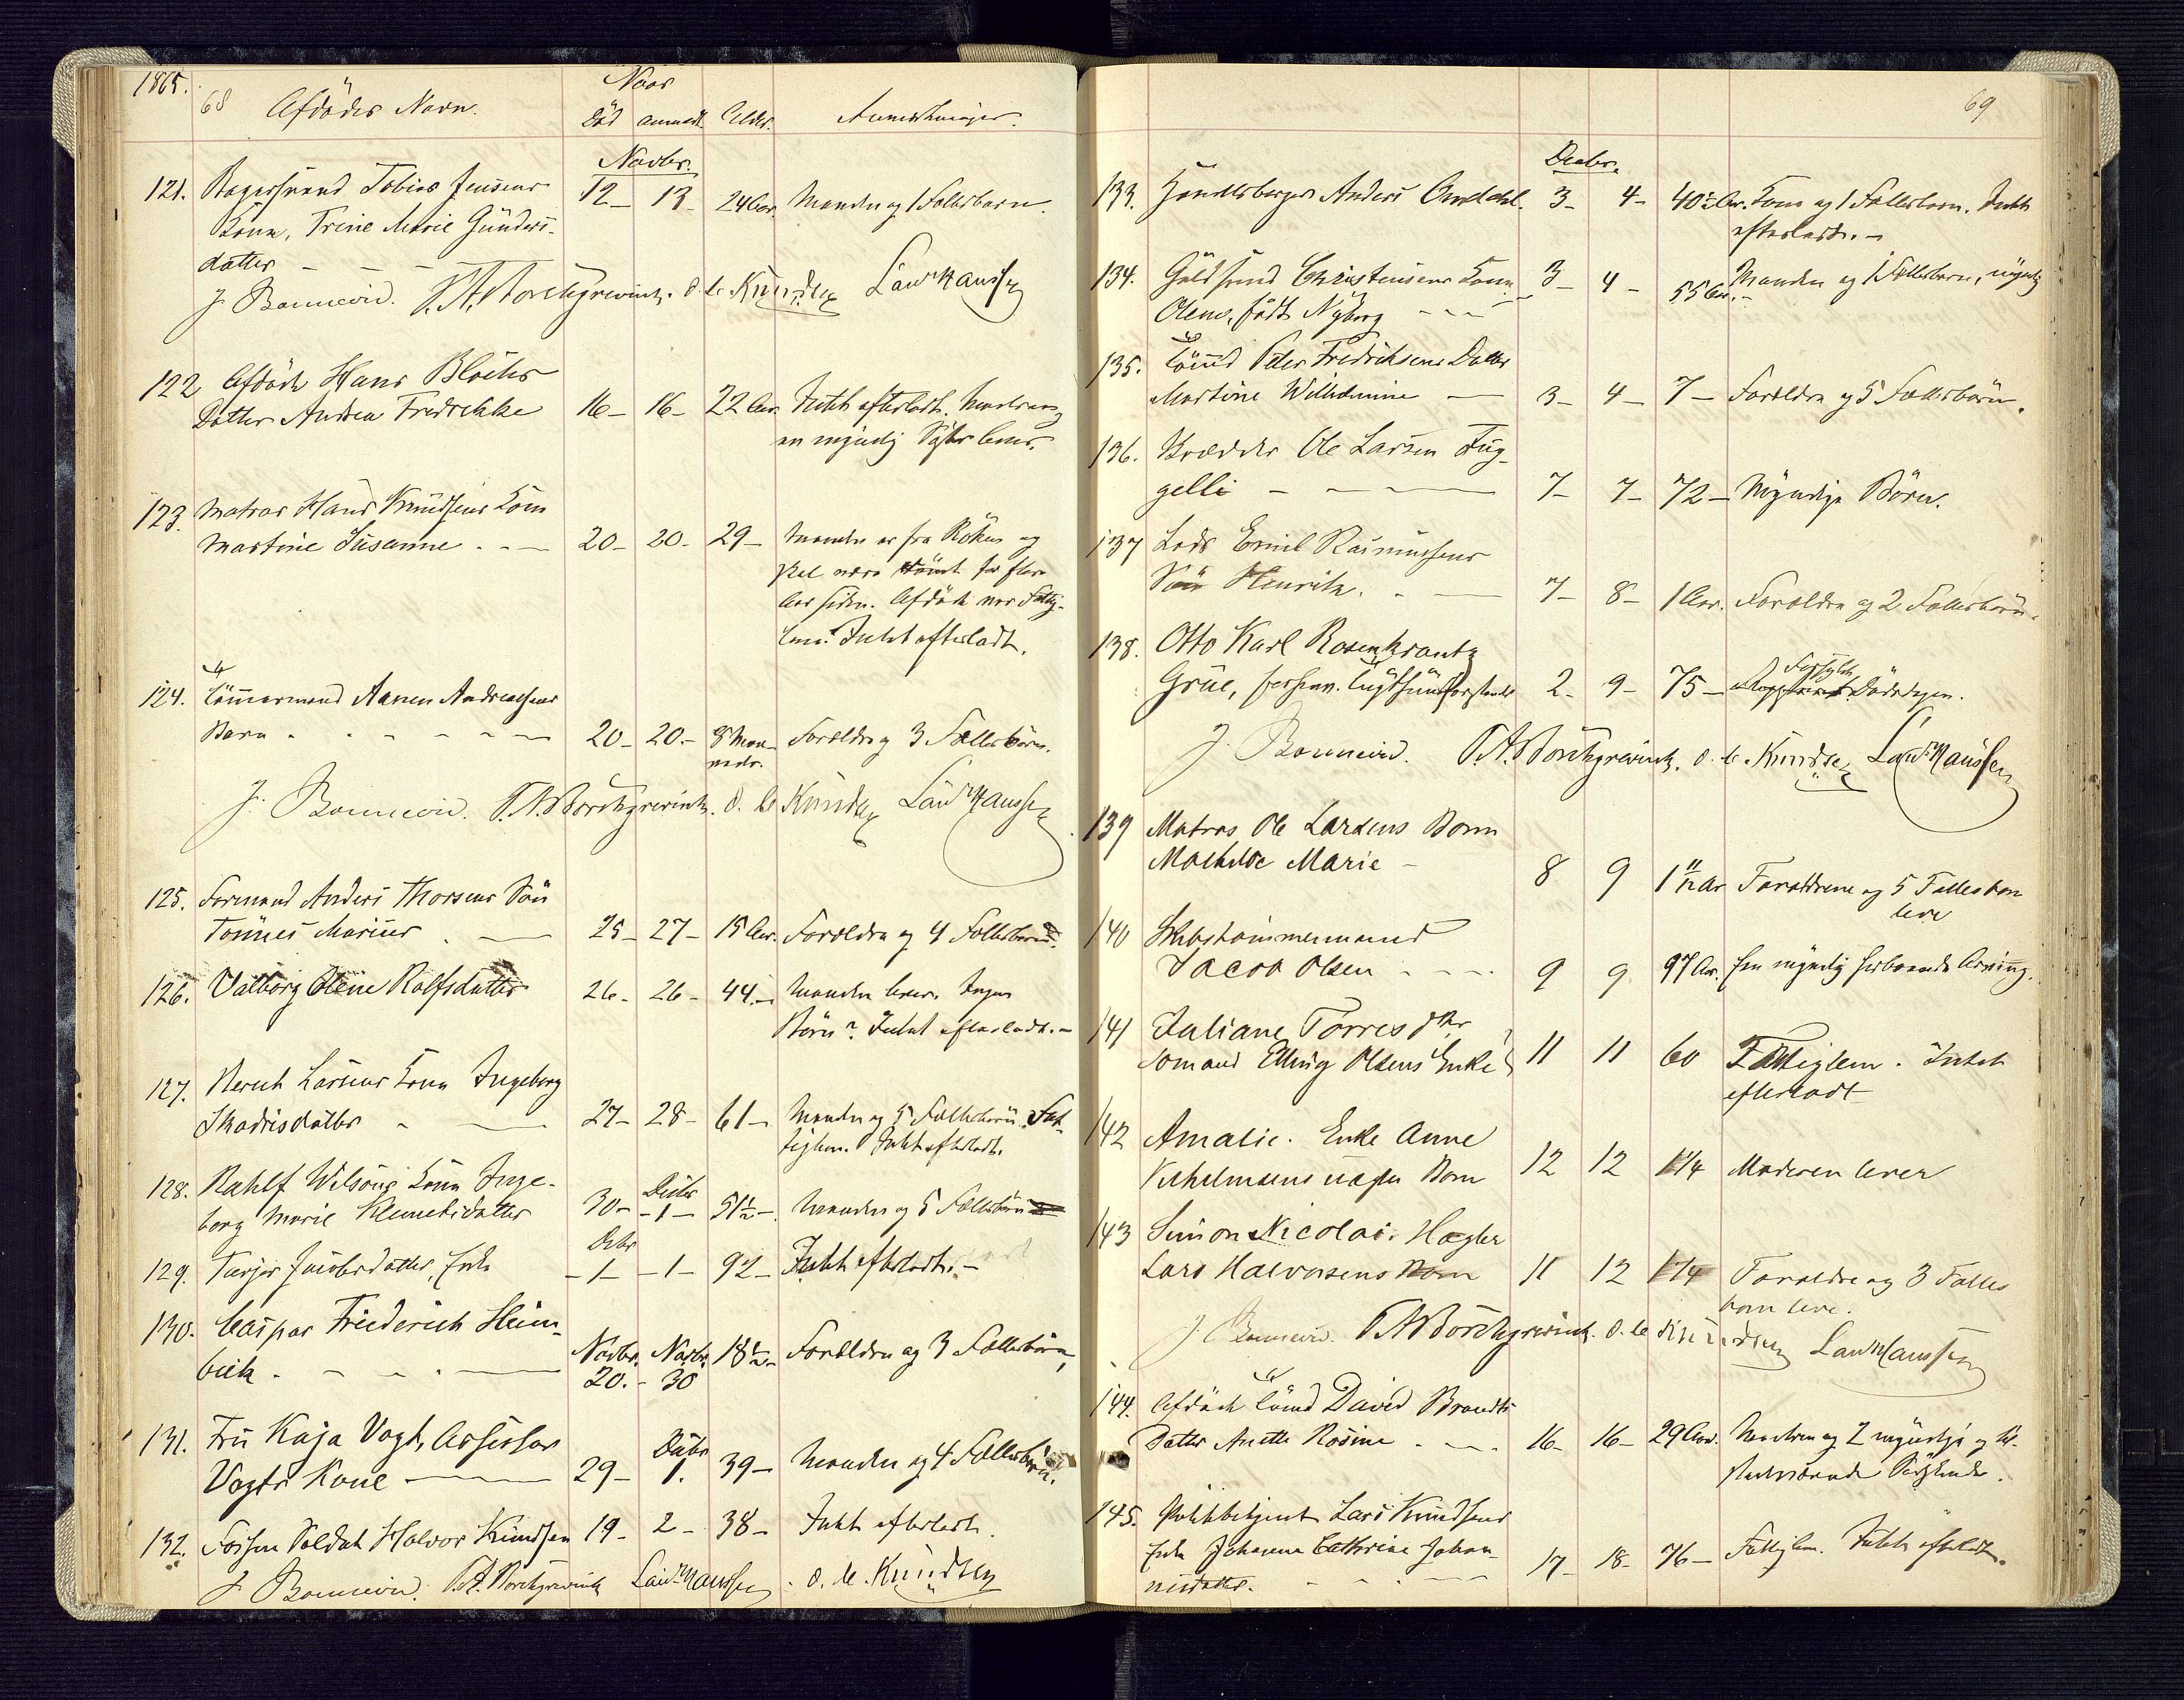 1865.
68 Afdödes Navn. Naar
Död anmeldt. Alder. Anmærkninger.
Novbr.
121. Bagersvend Tobias Jensens 12 - 13 - 24 Aar. Manden og 1 Fællesbarn.
Kone, Trine Marie Gunders-
datter - - -
J Bonnevie. P.A. Borchgrevink. O. C. Knudsen Laur Hanssen
122 Afdöde Hans Blochs
Datter Andrea Fredrikke 16 - 16 - 22 Aar. Intet efterladt. Moderen og
en myndig Syster lever.
123. Matros Hans Knudsens Kone
Martine Susanne . - - 20 - 20 - 29 - Manden er fra Röken og
skal være römt for flere
Aar siden. Afdöde var Fattig-
lem. Intet efterladt.
124. Tömmermand Aanen Andreassens
Barn . . - - - 20 - 20 - 8 Maa- Forældre og 3 Fællesbörn.
neder.
J. Bonnevie. P.A. Borchgrevink. O. C. Knudsen Laur Hanssen
125. Formand Anders Thorsens Sön
Tönnes Marius . - 25 - 27 - 15 Aar. Forældre og 4 Fællesbörn.
126. Valborg Olene Rolfsdatter 26 - 26 - 44. - Manden lever. Ingen
Börn? Intet efterladt. -
127. Berent Larsens Kone Ingeborg
Thodrisdatter - - 27 - 28 - 61 - Manden og 5 Fællesbörn. Fat-
tiglem. Intet efterladt.
128. Rahlf Wilsons Kone Inge- Decbr
borg Marie Klemetsdatter 30 - - 1 - 51½ - Manden og 5 Fællesbörn
Decbr
129. Tarjer Jacobsdatter, Enke - 1 - - 1 - 92 - Intet efterladt. -
130. Caspar Friederich Heim-
beck . - - . - Novbr. Novbr. 18½ - Forældre og 3 Fællesbörn
20. - 30
131. Fru Kaja Vogt, Assessor Decbr
Vogts Kone - 29 - 1. 39 - Manden og 4 Fællesbörn.
132. Forhen Soldat Halvor Knudsen 19 - 2 - 38 - Intet efterladt.
J Bonnevie. P.A. Borchgrevink Laur Hanssen. O. C. Knudsen
69
Decbr.
133. Handelsborger Anders Omdahl. 3 - 4 - 40½ Aar. Kone og 1 Fællesbarn. Intet
efterladt. -
134. Guldsmed Christensens Kone 3 - 4 - 55 Aar. - Manden og 1 Fællesbarn, myndig
Olene, födt Nyborg - - -
135. Tömd Peter Fredriksens Datter
Martine Wilhelmine - 3 - 4 - 7 - Forældre og 5 Fællesbörn.
136. Kræmmer Ole Larsen Tug-
gelli - - - 7 - 7 - 72 - Myndige Börn.
137 Lods Emil Rasmussens
Sön Henrik. - - 7 - 8 - 1 Aar. Forældre og 2 Fællesbörn.
138. Otto Karl Rosenkrantz
Grüe, forhenv. Tugthusforstander 2 - 9 - 75 - Dödsdagen.
J. Bonnevie. P.A. Borchgrevink. O. C. Knudsen Laur Hanssen
139 Matros Ole Larsens Barn
Mathilde Marie - 8 9 1 11/12 Ar Forældrene og 5 Fællesbørn
leve
140 Skibstømmermand
Jacob Olsen - - - . 9 9 97 Ar. En myndig herboende Arving.
141 Juliane Torresdtr
Sømand Elling Olsens Enke 11 11 60 Fattiglem. Intet
efterladt
142 Amalie. Enke Anne
Vilhelmsens uægte Barn 12 12 1/4 Moderen lever
143 Simon Nicolai. Hægler
Lars Halvorsens Barn 11 12 1/4 Forældre og 3 Fælles
børn leve.
J. Bonnevie. P.A. Borchgrevink. O. C. Knudsen Laur Hanssen
144. Afdöde Tömd David Brandts
Datter Anette Rosine . - . 16 - 16 - 29 Aar. Moderen og 2 myndige og til-
stedeværende Södskende.
145. Politibetjent Lars Knudsens
Enke Johanne Cathrine Johan-
nesdatter. - - - 17 - 18 - 76 - Fattiglem. Intet efterladt.